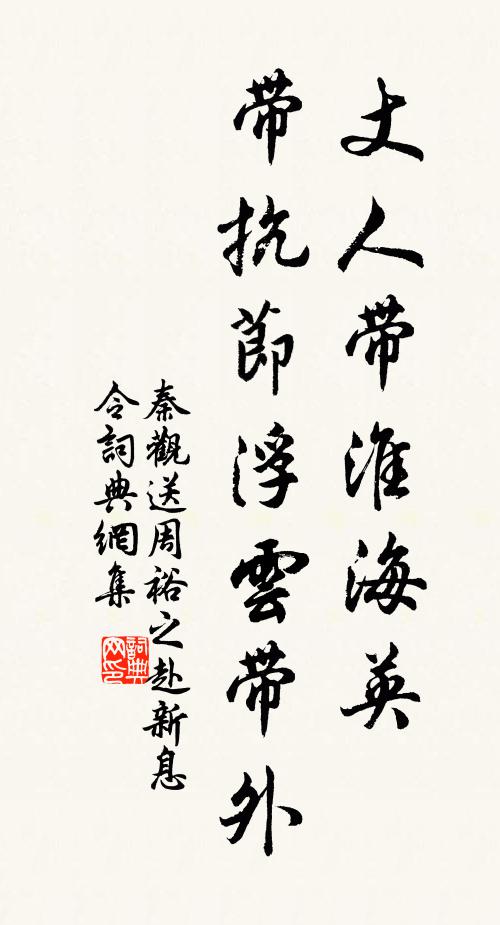 丈人带淮海英
带抗節浮雲带外
秦觀送周裕之赴新息
令詞典網集
詞典网印